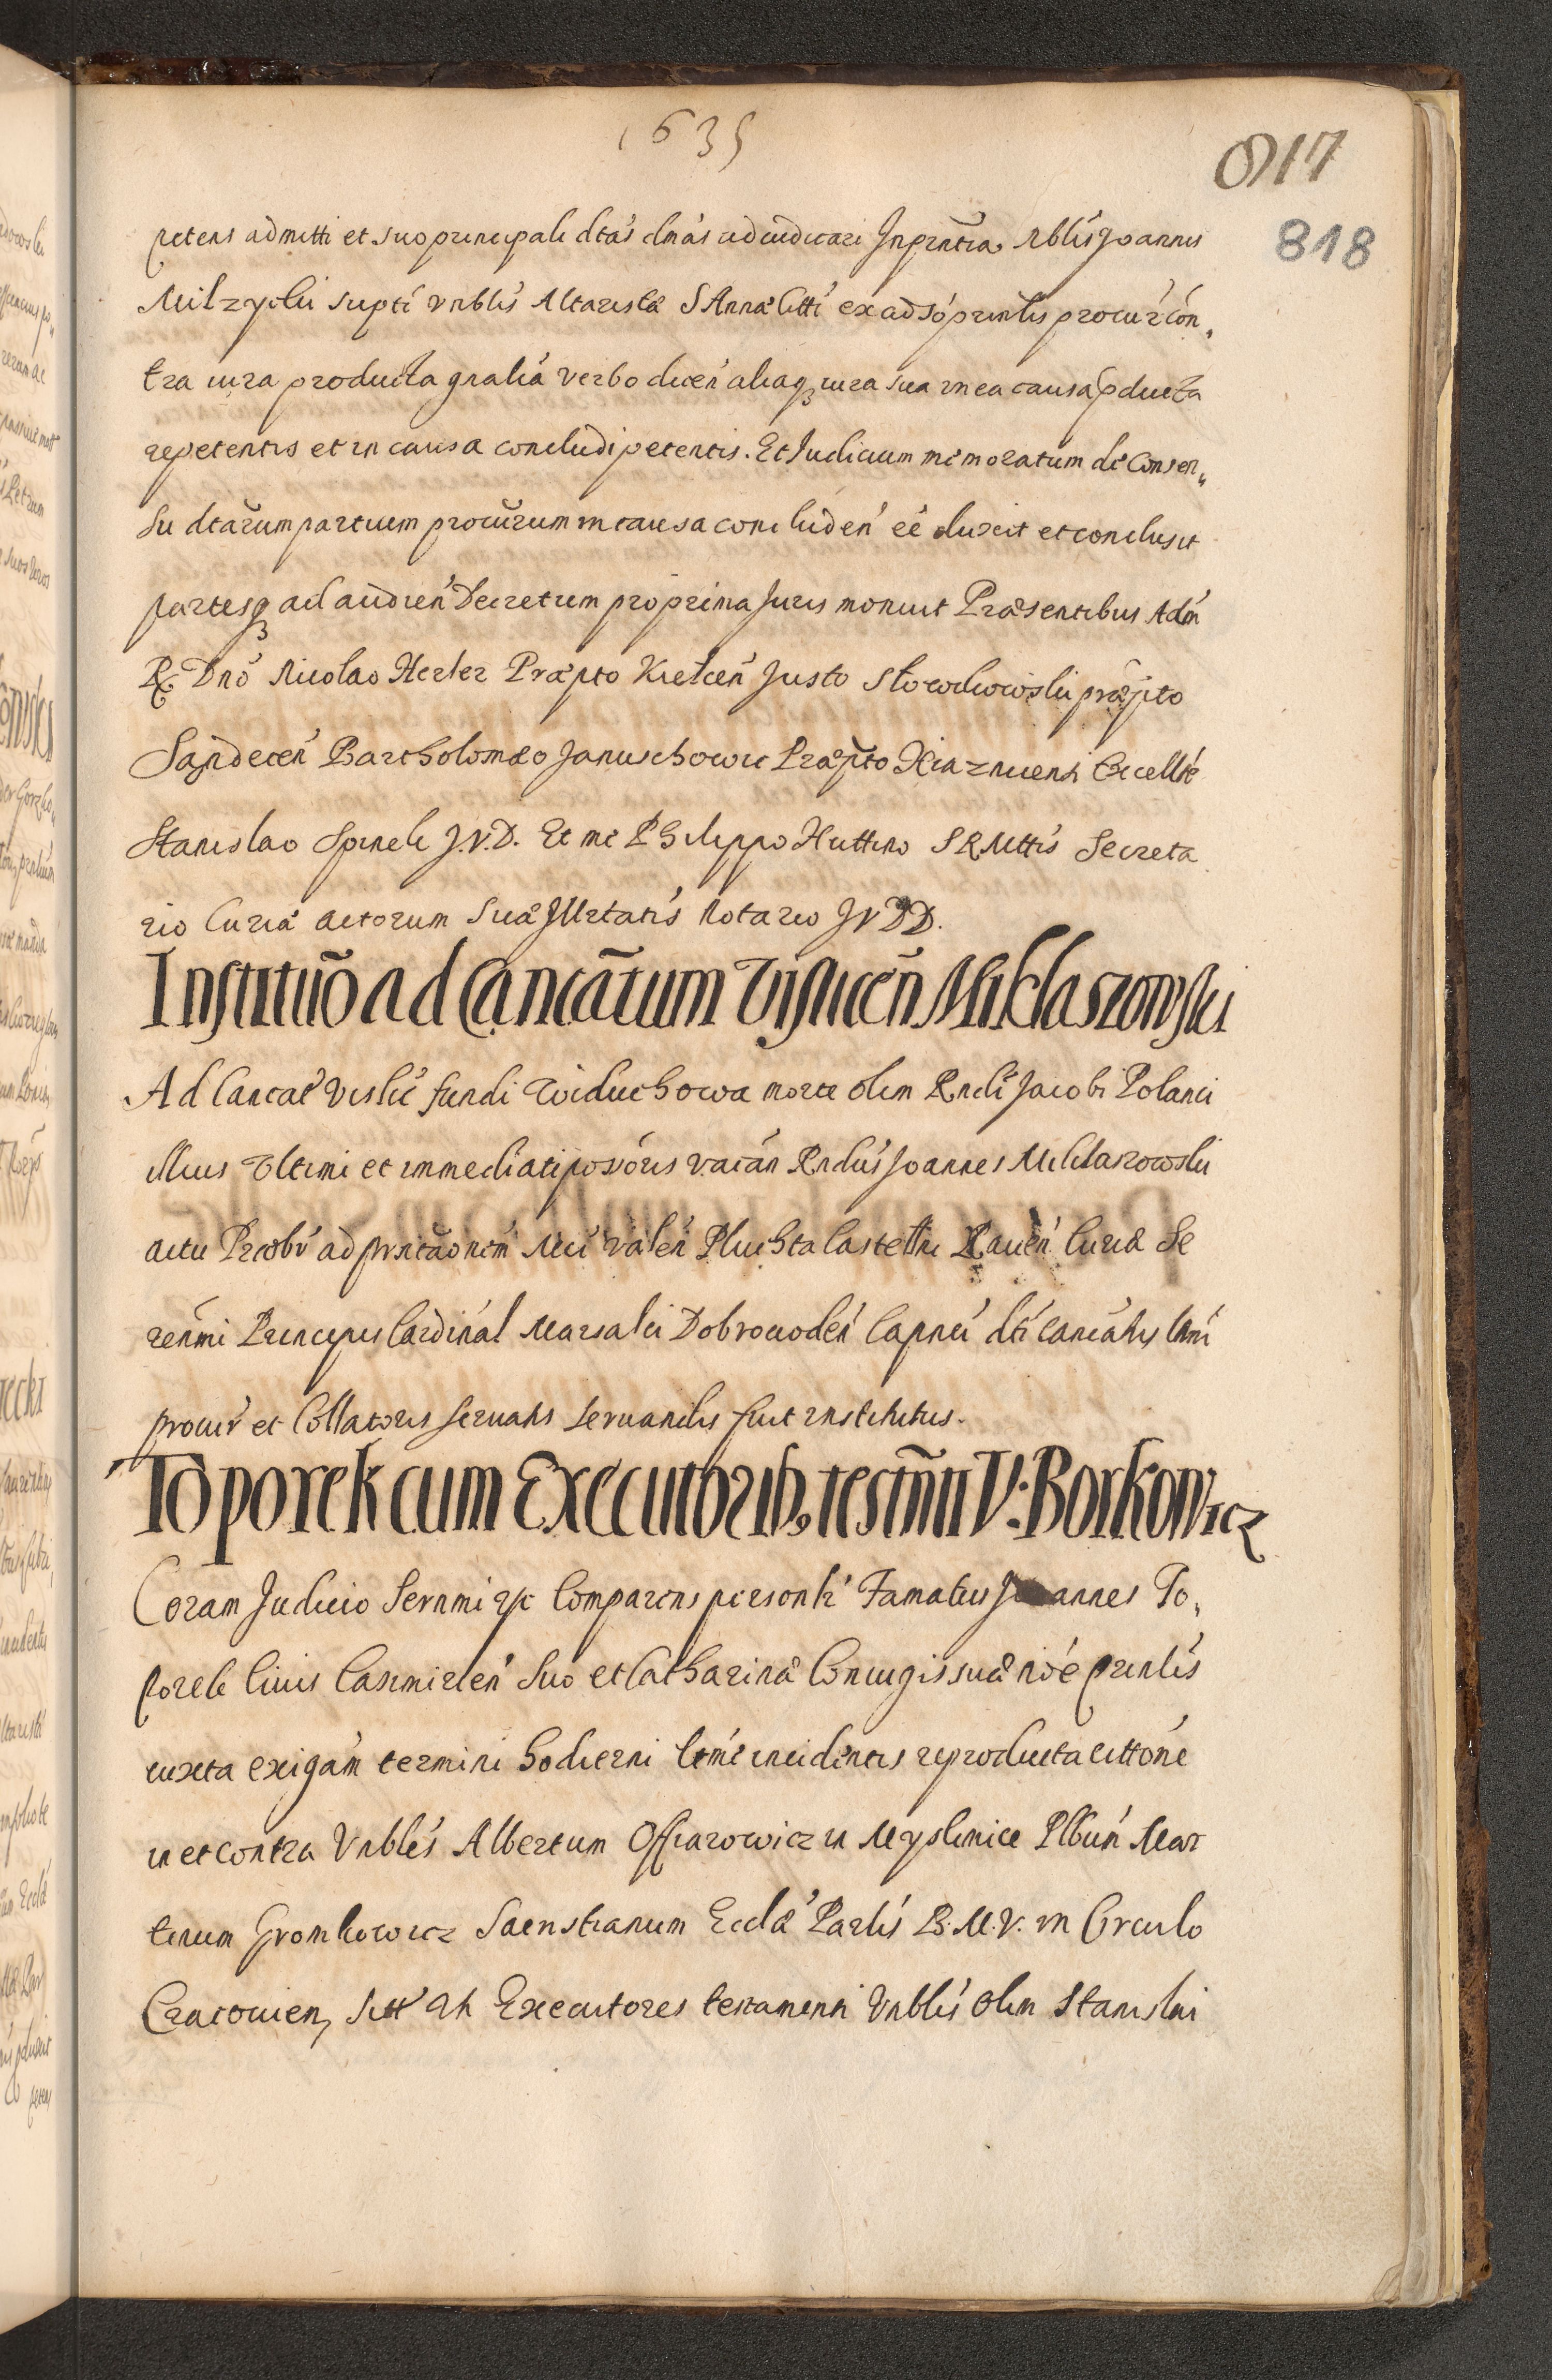 1635
817
818
petens admitti et suo principali dtas dmas adiudicari Inpntia Nblis Joannis
Milzycki supti Vnblis Altaristæ S Annæ Citti ex adso prinlis procur con„
tra iura producta gnalia verbo dicen aliaq iura sua in ea causa pducta
repetentis et in causa concludi petentis. Et Iudicium memoratum de Consen„
su dtarum partium procurum in causa concluden ee duxit et conclusit
partesq ad audien Decretum pro prima Juris monuit Præsentibus Adm
R. Dno Nicolao Herler Præpto Kielcen Justo Słowikowski præpto
Sandecen Bartholomæo Januschowic Præpto Xiaznicensi Excellte
Stanislao Spinek J.V.D. Et me Philippo Huttino S R Mttis Secreta
rio Curiæ actorum Suæ Illrtatis Notario J V D D.
Institutio ad Cancatum Vislicen Miklaszowski
Ad Cancae Vislic fundi Widuchowa morte olim Rndi Jacobi Polanci
illius Vltimi et immediati possoris vacan Rndus Joannes Miklaszowski
actu Præsbr ad pnntaonem Mci Valen Pluchta Castellni Raven Curiæ Se
renmi Principis Cardinal Marsalci Dobrowoden Capnei dti cancatus lmi
prouir et Collatoris seruatis seruandis fuit institutus.
Toporek cum Executorib, testmti V. Borkowicz
Coram Judicio Sernmi &c Comparens personlr Famatus Joannes To„
porek Ciuis Casimirien Suo et Catharinæ Coniugis suæ noie prinlis
iuxta exigam termini hodierni ltme incidentis reproducta cittone
in et contra Vnbles Albertum Offiarowicz in Myslimice Plbun Mar
tinum Gromkowicz Saenstianum Eccla Parlis B.M.V. in Circulo
Cracouien, sitt uti Executores testamenti Vnblis olim Stanislai